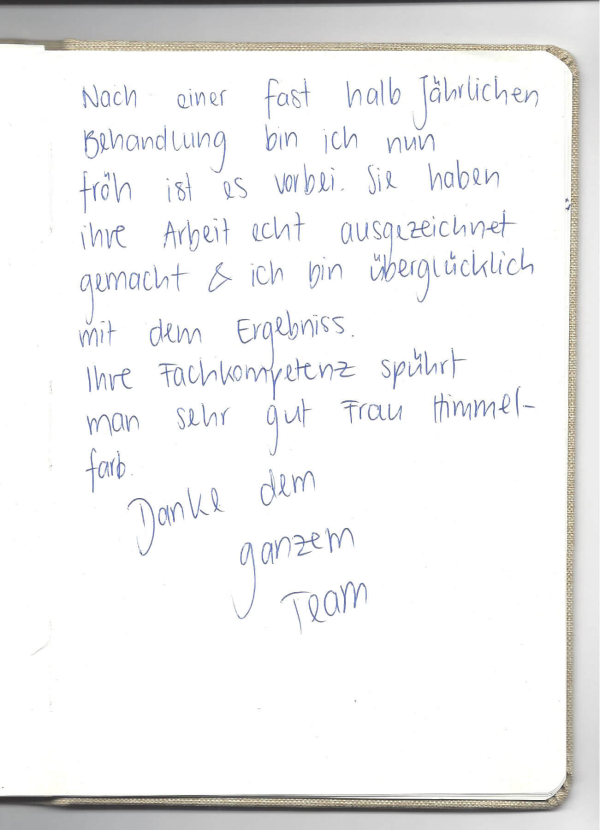 Nach einer fast halb Jährlichen
Behandlung bin ich nun
fröh ist es vorbei. Sie haben
ihre Arbeit echt ausgezeichnet
gemacht & ich bin überglücklich
mit dem Ergebniss.
Ihre Fachkompetenz spührt
man sehr gut Frau Himmel-
farb.
Danke dem
ganzem
Team